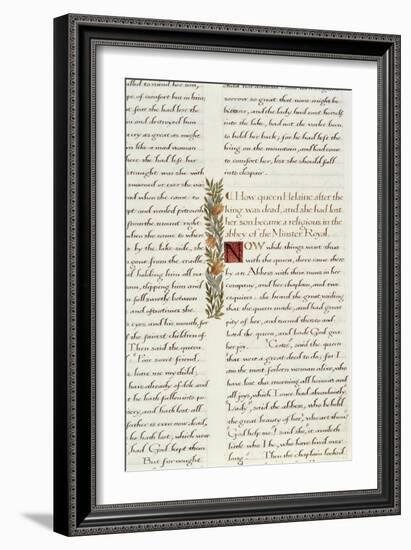 called to mind her son,
of comfort but in him,
four she had lost the
and destroyed him
cry as great as might
like a mad woman
here she had left her
straight was she with
swooned or ever she was
and when she came to
wept and
the nearest right
when she came to where
by the lake side, she
gone from the cradle
holding him all na
him, tipping him and
full sweetly between
and aftertimes she
eyes, and his mouth, for
the fairest children of
Then said the queen
"Fair sweet friend,
leave me my child;
have already of dole and
he hath fallen into po
and hath lost all
father is even now dead,
he hath lost, which were
had God kept them
But for nought
sorrow so great that none might be
and the lady had cast herself
into the lake, had not the varlet been
to hold her back; for he had left the
king on the mountain, and had come
to comfort her, lest she should fall
into despair.
How queen Helaine after the
king was dead, and she had lost
her son became a religious in the
abbey of the Minster Royal.
NOW while things went thus
with the queen, there came thereby
by an Abbess with three nuns in her
company, and her chaplain, and two
esquires: she heard the great wailing
that the queen made, and had great
pity of her, and turned thereto and
hailed the queen, and bade God give
her joy. "Certes", said the queen
that were a great deed to do; for I
am the most forlorn woman alive, who
have lost this morning all honour and
all joys, which I once had abundantly.
"Lady", said the abbess, who beheld
the great beauty of her, "who art thou?"
"God help me!" said she, "it availeth
little who I be, who have lived over
long." Then the chaplain looked